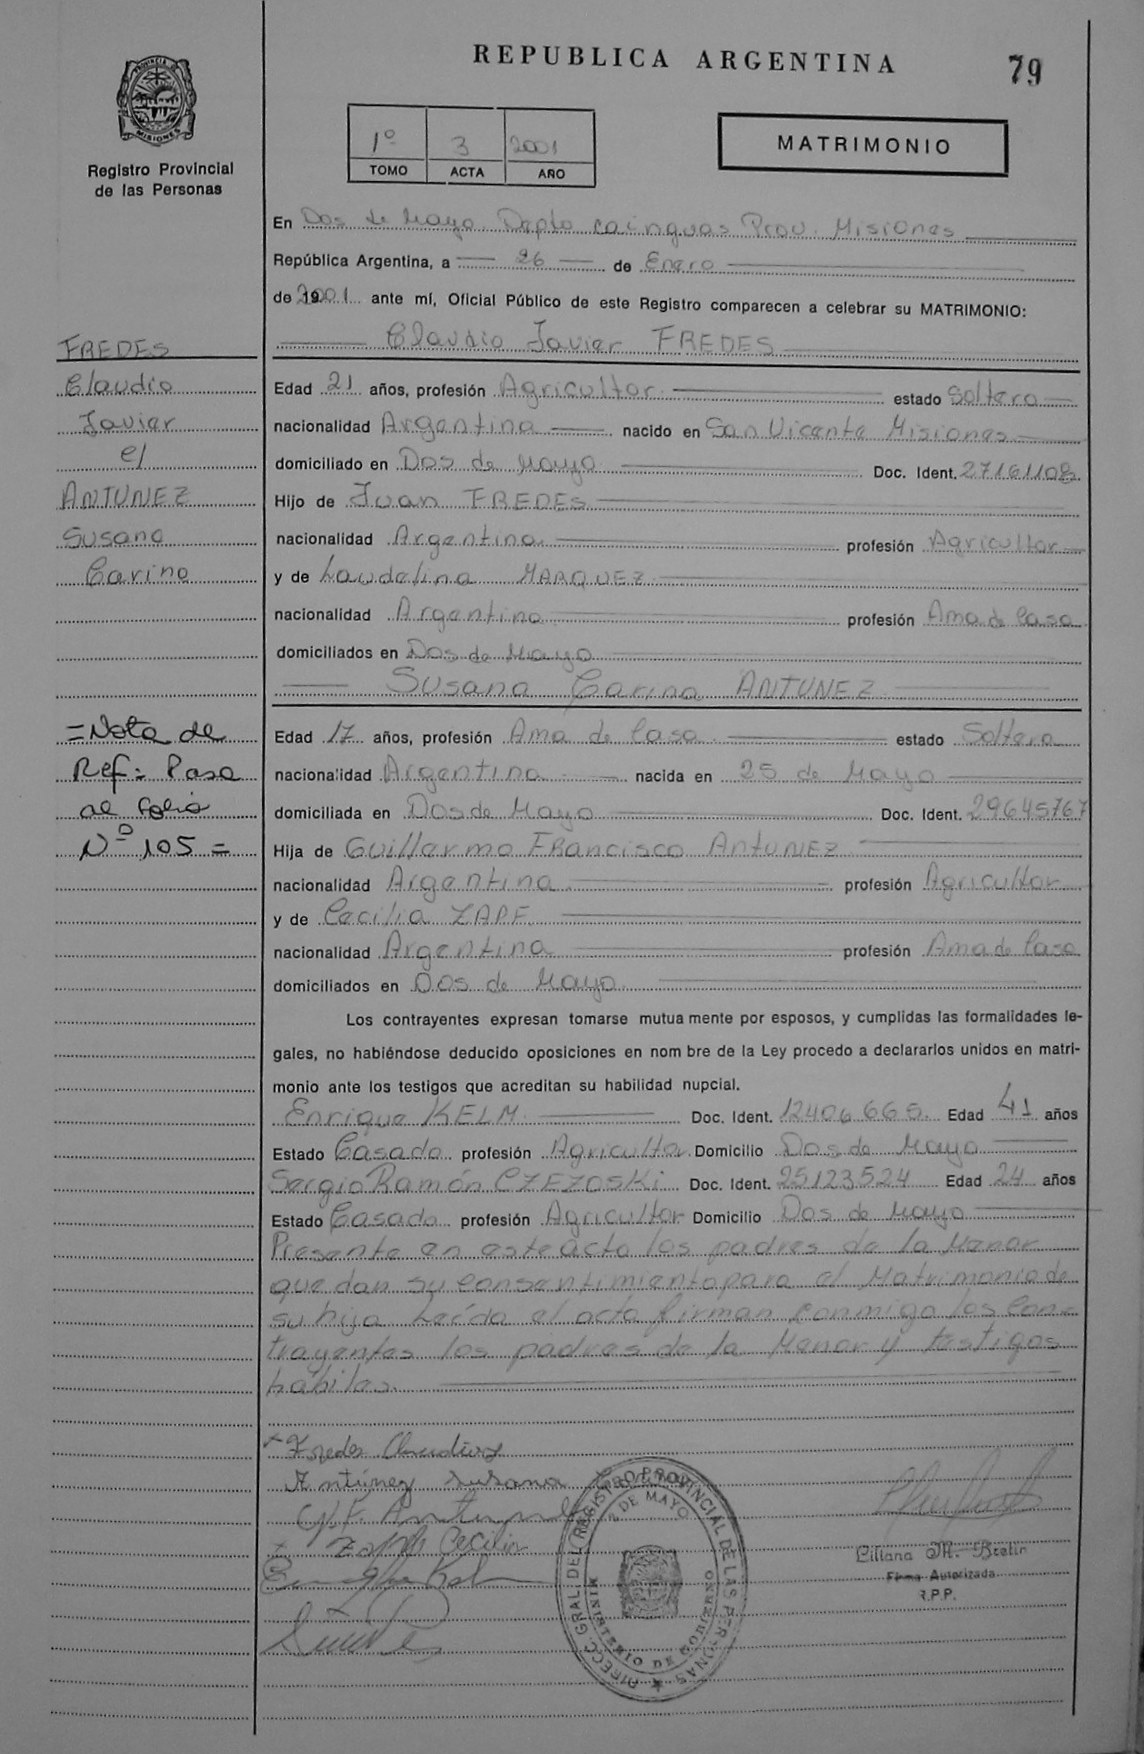 REPUBLICA ARGENTINA
79
PROVINCIA DE MISIONES
Registro Provincial
de las Personas
1º 3 2001
TOMO ACTA AÑO
MATRIMONIO
En Dos de Mayo Depto cainguas Prov. Misiones
República Argentina, a 26 de Enero
de 2001 ante mí, Oficial Público de este Registro comparecen a celebrar su MATRIMONIO:
Claudio Javier FREDES
Edad 21 años, profesión Agricultor estado Soltero
nacionalidad Argentina nacido en San Vicente Misiones
domiciliado en Dos de Mayo Doc. Ident. 27161108
Hijo de Juan FREDES
nacionalidad Argentina profesión Agricultor
y de Laudelina MARQUEZ
nacionalidad Argentina profesión Ama de Casa
domiciliados en Dos de Mayo
Susana Carina ANTUNEZ
Edad 17 años, profesión Ama de Casa estado Soltera
nacionalidad Argentina nacida en 25 de Mayo
domiciliada en Dos de Mayo Doc. Ident. 29645767
Hija de Guillermo FRancisco ANTUNEZ
nacionalidad Argentina profesión Agricultor
y de Cecilia ZAPF
nacionalidad Argentina profesión Ama de Casa
domiciliados en Dos de Mayo
Los contrayentes expresan tomarse mutua mente por esposos, y cumplidas las formalidades le-
gales, no habiéndose deducido oposiciones en nom bre de la Ley procedo a declararlos unidos en matri-
monio ante los testigos que acreditan su habilidad nupcial.
Enrique KELM Doc. Ident. 12406665 Edad 41 años
Estado Casado profesión Agricultor Domicilio Dos de Mayo
Sergio Ramón CZEZOSKi Doc. Ident. 25123524 Edad 24 años
Estado Casado profesión Agricultor Domicilio Dos de Mayo
Presente en este acto los padres de la Menor
que dan su consentimiento para el Matrimonio de
su hija Leída el acta firman conmigo los Con-
trayentes los padres de la Menor y testigos
habiles.
FREDES
Claudio
Javier
c/
ANTUNEZ
Susana
Carina
=Nota de
Ref= Pasa
al folio
Nº 105=
Fredes Claudio
Antúnez Susana
G. F. Antunez
Zapf Cecilia
DIRECC. GRAL. DEL REGISTRO PROVINCIAL DE LAS PERSONAS
2 DE MAYO
MINISTERIO DE GOBIERNO
Liliana M. Bretin
Firma Autorizada
R.P.P.